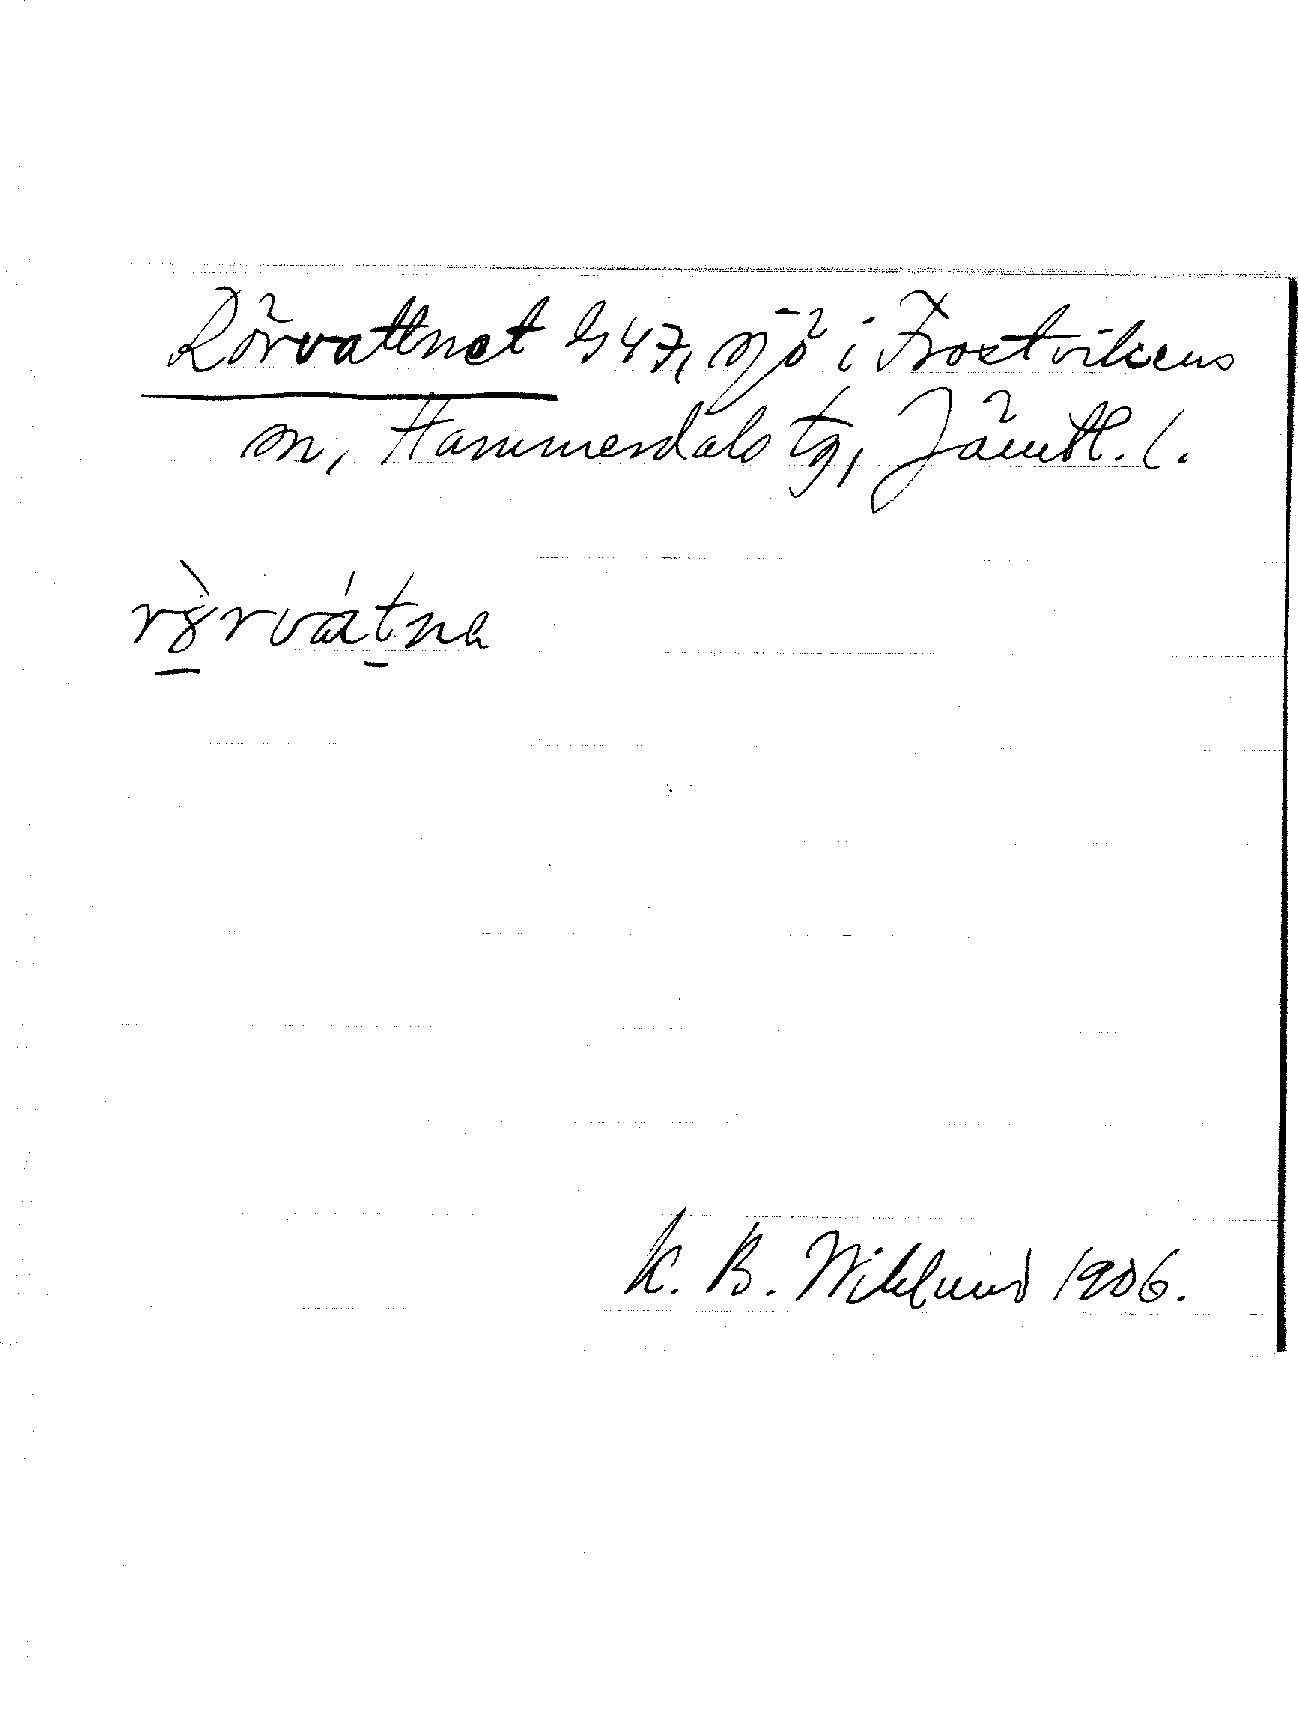 Rörvattnet G47, sjö i Frostvikens
sn, Hammerdals tg, Jämtl. l.
rȣ̀rvátna
K. B. Wiklund 1906.